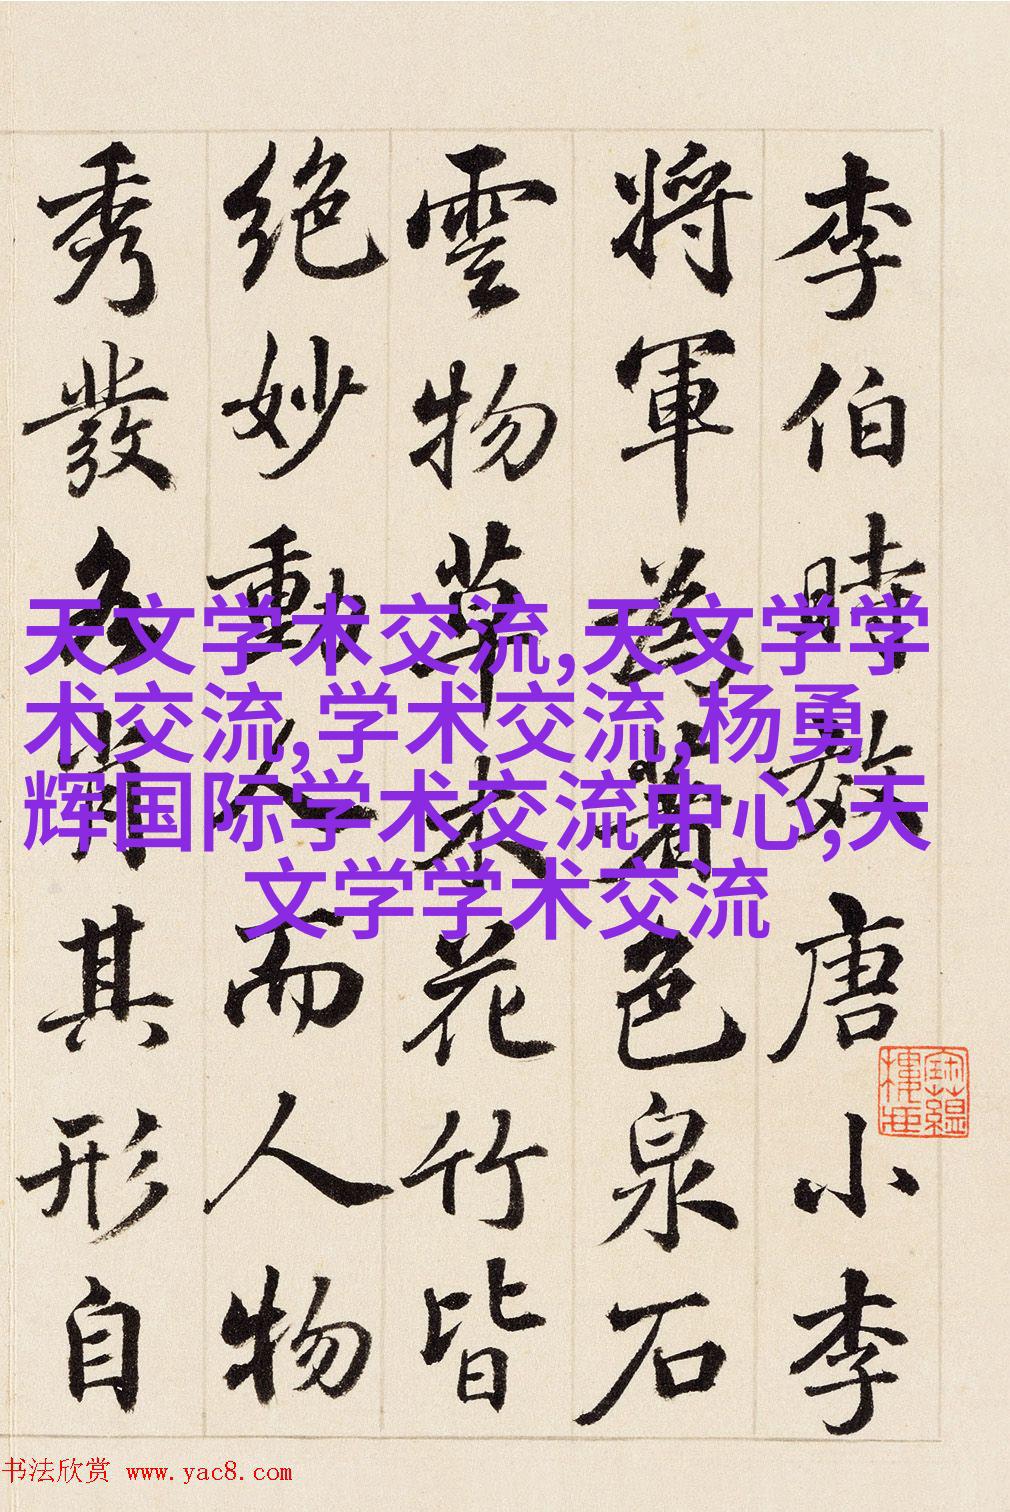 李伯時效唐小李
將軍為著色泉石
雲物草木花竹皆
絶妙動人而人物
秀發各肖其形自
天文学术交流,天文学学
术交流,学术交流,杨勇
辉国际学术交流中心,天
文学学术交流
书法欣赏 www.yac8.com